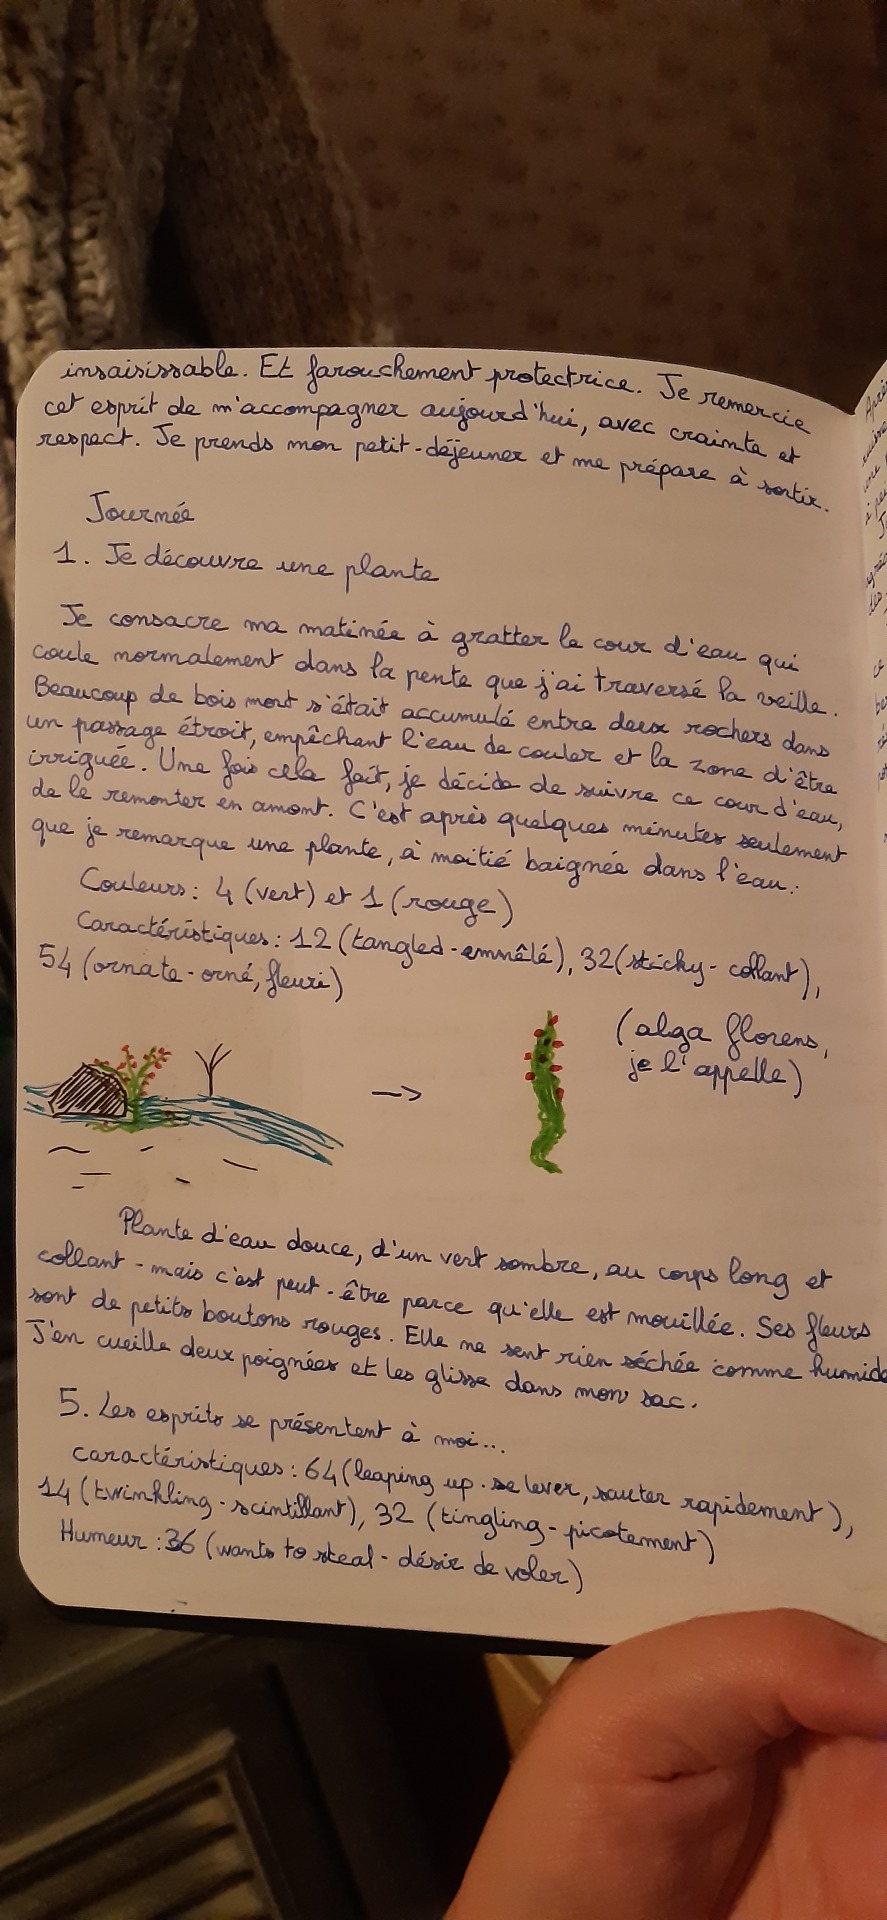 insaisissable. Et farouchement protectrice. Je remercie
cet esprit de m'accompagner aujourd'hui, avec crainte et
respect. Je prends mon petit-déjeuner et me prépare à sortir.
Journée
1. Je découvre une plante
Je consacre ma matinée à gratter le cour d'eau qui
coule normalement dans la pente que j'ai traversé la veille.
Beaucoup de bois mort s'était accumulé entre deux rochers dans
un passage étroit, empêchant l'eau de couler et la zone d'être
irriguée. Une fois cela fait, je décide de suivre ce cour d'eau,
de le remonter en amont. C'est après quelques minutes seulement
que je remarque une plante, à moitié baignée dans l'eau :
Couleurs : 4 (vert) et 1 (rouge)
Caractéristiques : 12 (tangled - emmêlé), 32 (sticky - collant),
54 (ornate - orné, fleuri)
(alga florens,
je l'appelle)
→
Plante d'eau douce, d'un vert sombre, au corps long et
collant - mais c'est peut-être parce qu'elle est mouillée. Ses fleurs
sont de petits boutons rouges. Elle ne sent rien séchée comme humide
J'en cueille deux poignées et les glisse dans mon sac.
5. Les esprits se présentent à moi...
caractéristiques : 64 (leaping up - se lever, sauter rapidement),
14 (twinkling - scintillant), 32 (tingling - picotement)
Humeur : 36 (wants to steal - désir de voler)